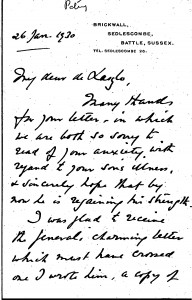 BRICKWALL,
SEDLESCOMBE,
BATTLE, SUSSEX.
TEL. SEDLESCOMBE 20.
26 Jan. 1930
My dear de Laszlo,
Many thanks
for your letter, in which
we are both so sorry to
read of your anxiety with
regard to your son's illness,
& sincerely hope that by
now he is regaining his strength.
I was glad to receive
the General's charming letter
which must have crossed
one I wrote him, a copy of